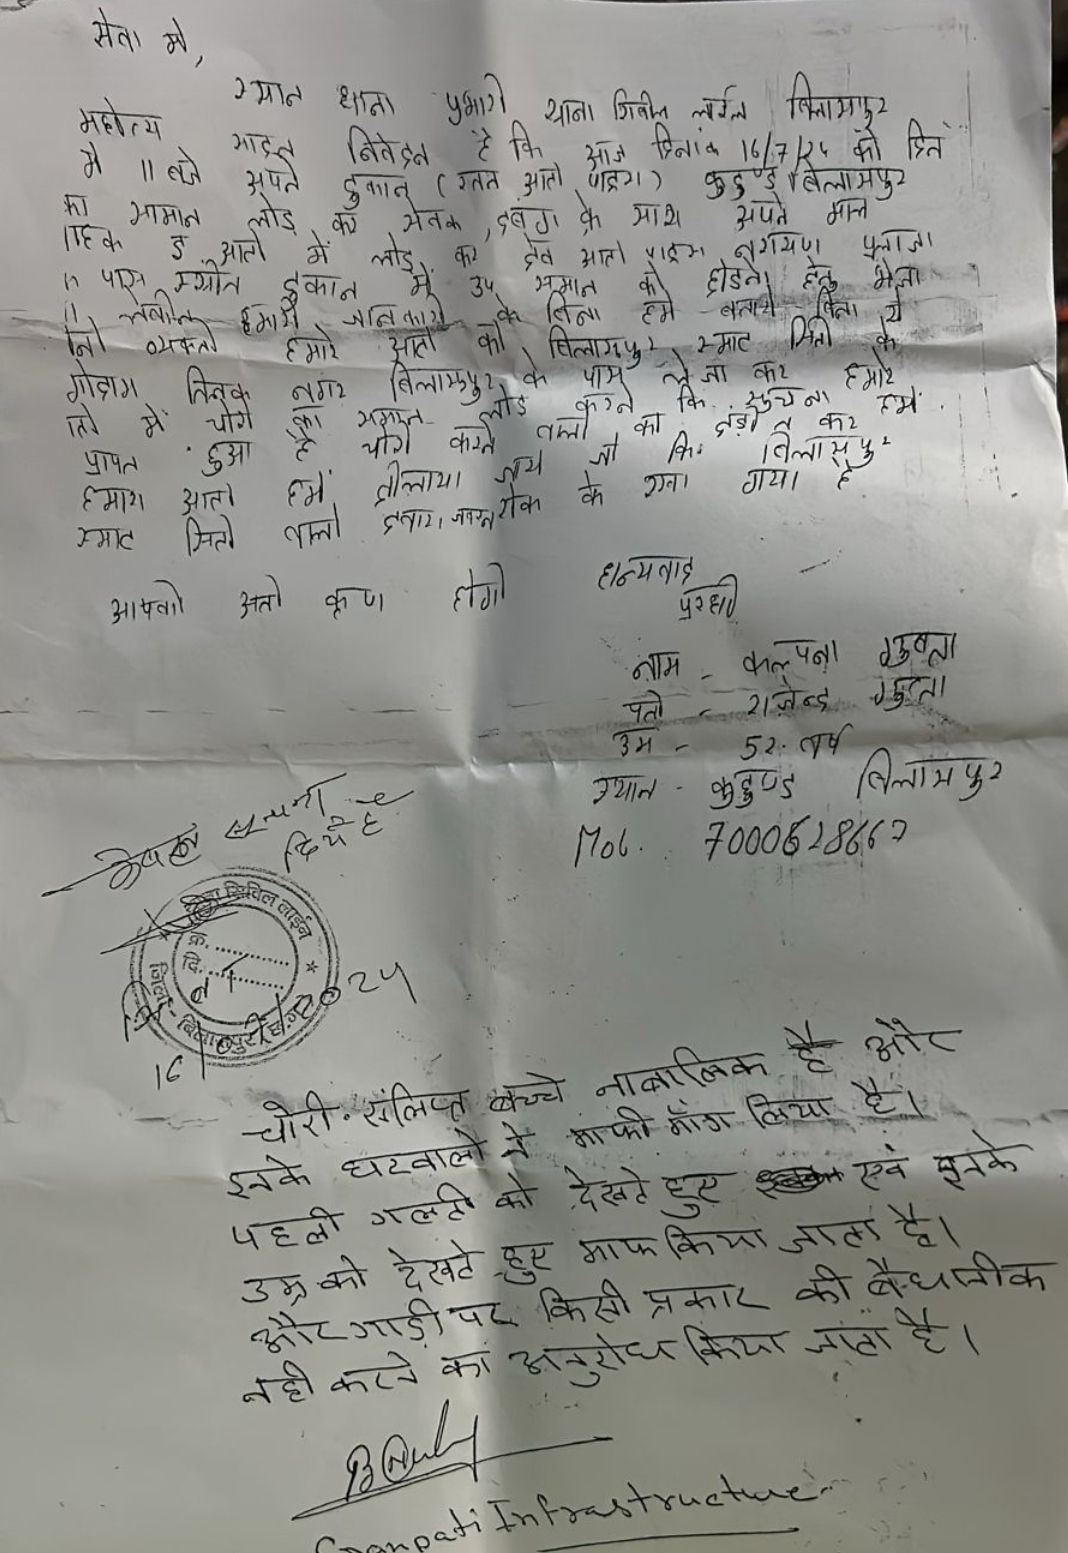 सेवा मे,
श्मान थाना प्रभारी थाना सिवील लाईन बिलासपुर
महोदय सादर निवेदन है कि आज दिनांक 16/7/24 को दिन
मे 11 बजे अपने दुकान (रतन आटो पाइस) कुदुण्ड बिलासपुर
का सामान लोड कर सेवक, के साथ अपने माल
वाहक ई आटो में लोड कर देव आटो पाइस नारायण प्लाजा
पास स्थीत दुकान में उप समान को छोडने हेतु भेजा
लेकीन हमारे जानकारी के बिना हमे बताये बिना ये
व्यक्ती हमारे आटो को बिलासपुर स्माट सिटी के
गोदाम तिलक नगर बिलासपुर के पास ले जा कर हमारे
में चोरी का समान लोड करने कि सुचना हमें
प्रापत हुआ है चोरी करने वालो को कर
हमारा आटो हमें दीलाया जाये जो कि बिलासपुर
स्माट सिटी वालो द्वारा रोक के रखा गया है
आपकी अती कृपा होगी धन्यवाद
प्रार्थी
नाम - कल्पना गुप्ता
पती - राजेन्द्र गुप्ता
उम्र - 52 वर्ष
स्थान - कुदुण्ड बिलासपुर
Mob. 7000628667
दिये है
थाना सिविल लाईन
क्र. ..........
दि. ..........
जिला - बिलासपुर (छ.ग.)
चोरी संलिप्त बच्चे नाबालिक है और
इनके घरवालो ने माफी माँग लिया है।
पहली गलती को देखते हुए एवं इनके
उम्र को देखते हुए माफ किया जाता है।
और गाड़ी पर किसी प्रकार की बैधानीक
नही करने का अनुरोध किया जाता है।
Ganpati Infrastructure